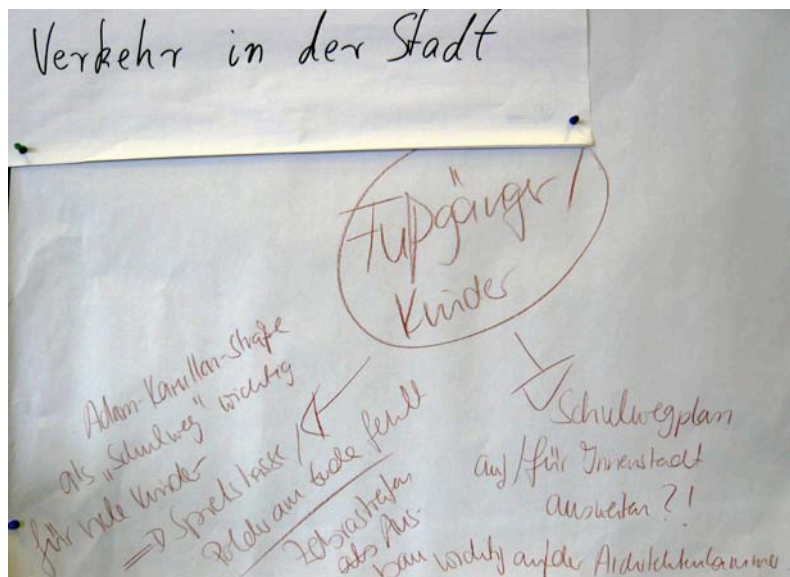 Verkehr in der Stadt
Fußgänger /
Kinder
Adam-Karrillon-Straße
als „Schulweg" wichtig
für viele Kinder
⇒ Spielstraße /
Poller am Ende fehlt
Zebrastreifen
als Aus-
bau wichtig auf der
Schulwegplan
auf/für Innenstadt
ausweiten?!